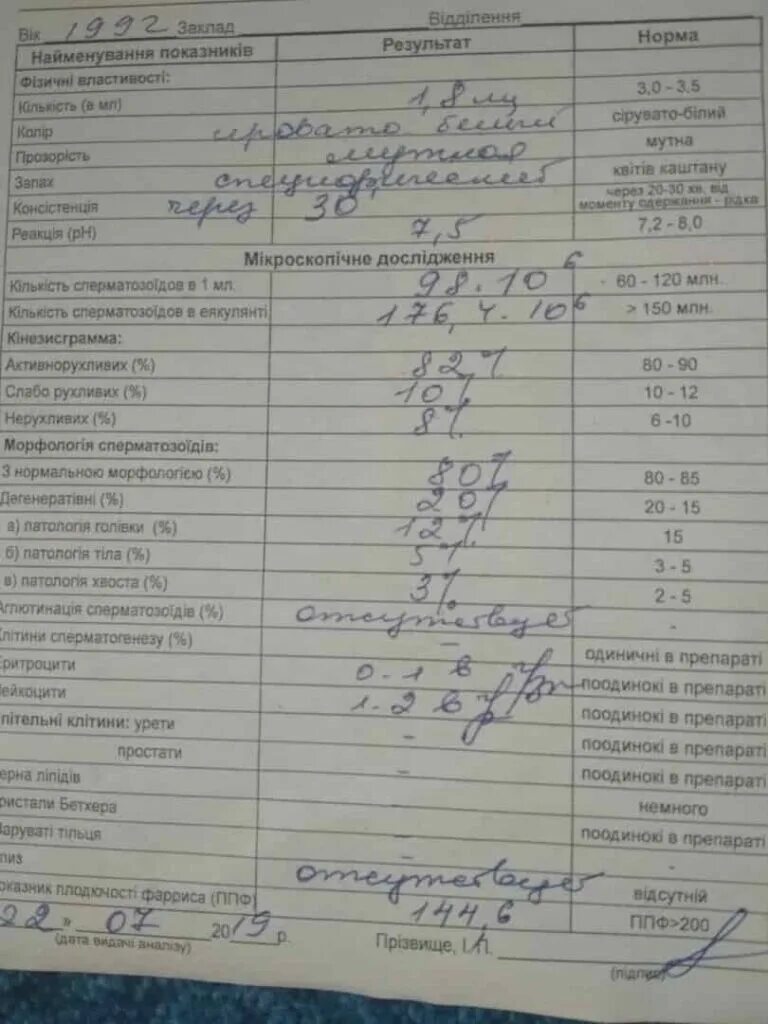 Вік 1992 Заклад Відділення
Найменування показників Результат Норма
Фізичні властивості:
Кількість (в мл) 1,8 мл 3,0 - 3,5
Колір сіровато белый сірувато-білий
Прозорість мутная мутна
Запах специфический квітів каштану
Консістенція через 30' через 20-30 хв. від моменту одержання - рідка
Реакція (рН) 7,5 7,2 - 8,0
Мікроскопічне дослідження
Кількість сперматозоїдів в 1 мл. 98·10⁶ 60 - 120 млн.
Кількість сперматозоїдів в еякулянті 176,4·10⁶ > 150 млн.
Кінезисграмма:
Активнорухливих (%) 82% 80 - 90
Слабо рухливих (%) 10% 10 - 12
Нерухливих (%) 8% 6 -10
Морфологія сперматозоїдів:
З нормальною морфологією (%) 80% 80 - 85
Дегенеративні (%) 20% 20 - 15
а) патологія голівки (%) 12% 15
б) патологія тіла (%) 5% 3 - 5
в) патологія хвоста (%) 3% 2 - 5
Аглютинація сперматозоїдів (%) отсутствует -
клітини сперматогенезу (%) - одиничні в препараті
еритроцити 0-1 в п/зр поодинокі в препараті
лейкоцити 1-2 в п/зр поодинокі в препараті
пітельні клітини: урети - поодинокі в препараті
простати - поодинокі в препараті
ерна ліпідів немного
ристали Бетхера - поодинокі в препараті
аруваті тільця - -
лиз отсутствует відсутній
оказник плодючості фарриса (ППФ) 144,6 ППФ>200
22 » 07 2019 р. Прізвище, І.П.
(дата видачі аналізу) (підпис)